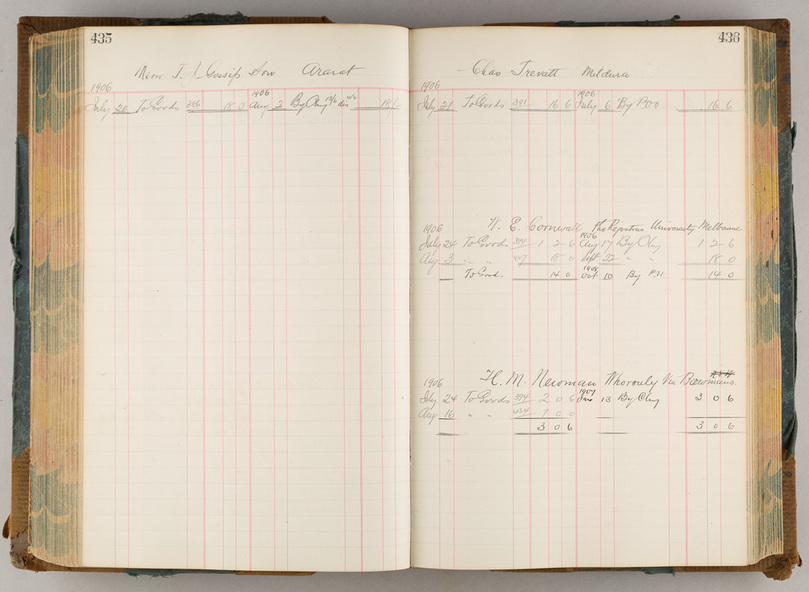 435
T. J. Gossip Ararat
1906
1906
July 20 To Goods 18 0 Aug 2 By
436
Chas Trevatt Mildura
1906
1906
July 21 To Goods 391 16 6 July 6 By P.O.O 16 6
W. E. Cornwall University Melbourne
1906
1906
July 24 To Goods 394 1 2 6 Aug 17 By Chq 1 2 6
Aug 3 " " 18 0 Sept 22 " " 18 0
To Goods 14 0 Oct 10 By 14 0
H. M. Newman Whorouly Via
1906
1907
July 24 To Goods 394 2 0 6 Jan 13 By Chq 3 0 6
Aug 16 " " 424 1 0 0
3 0 6 3 0 6